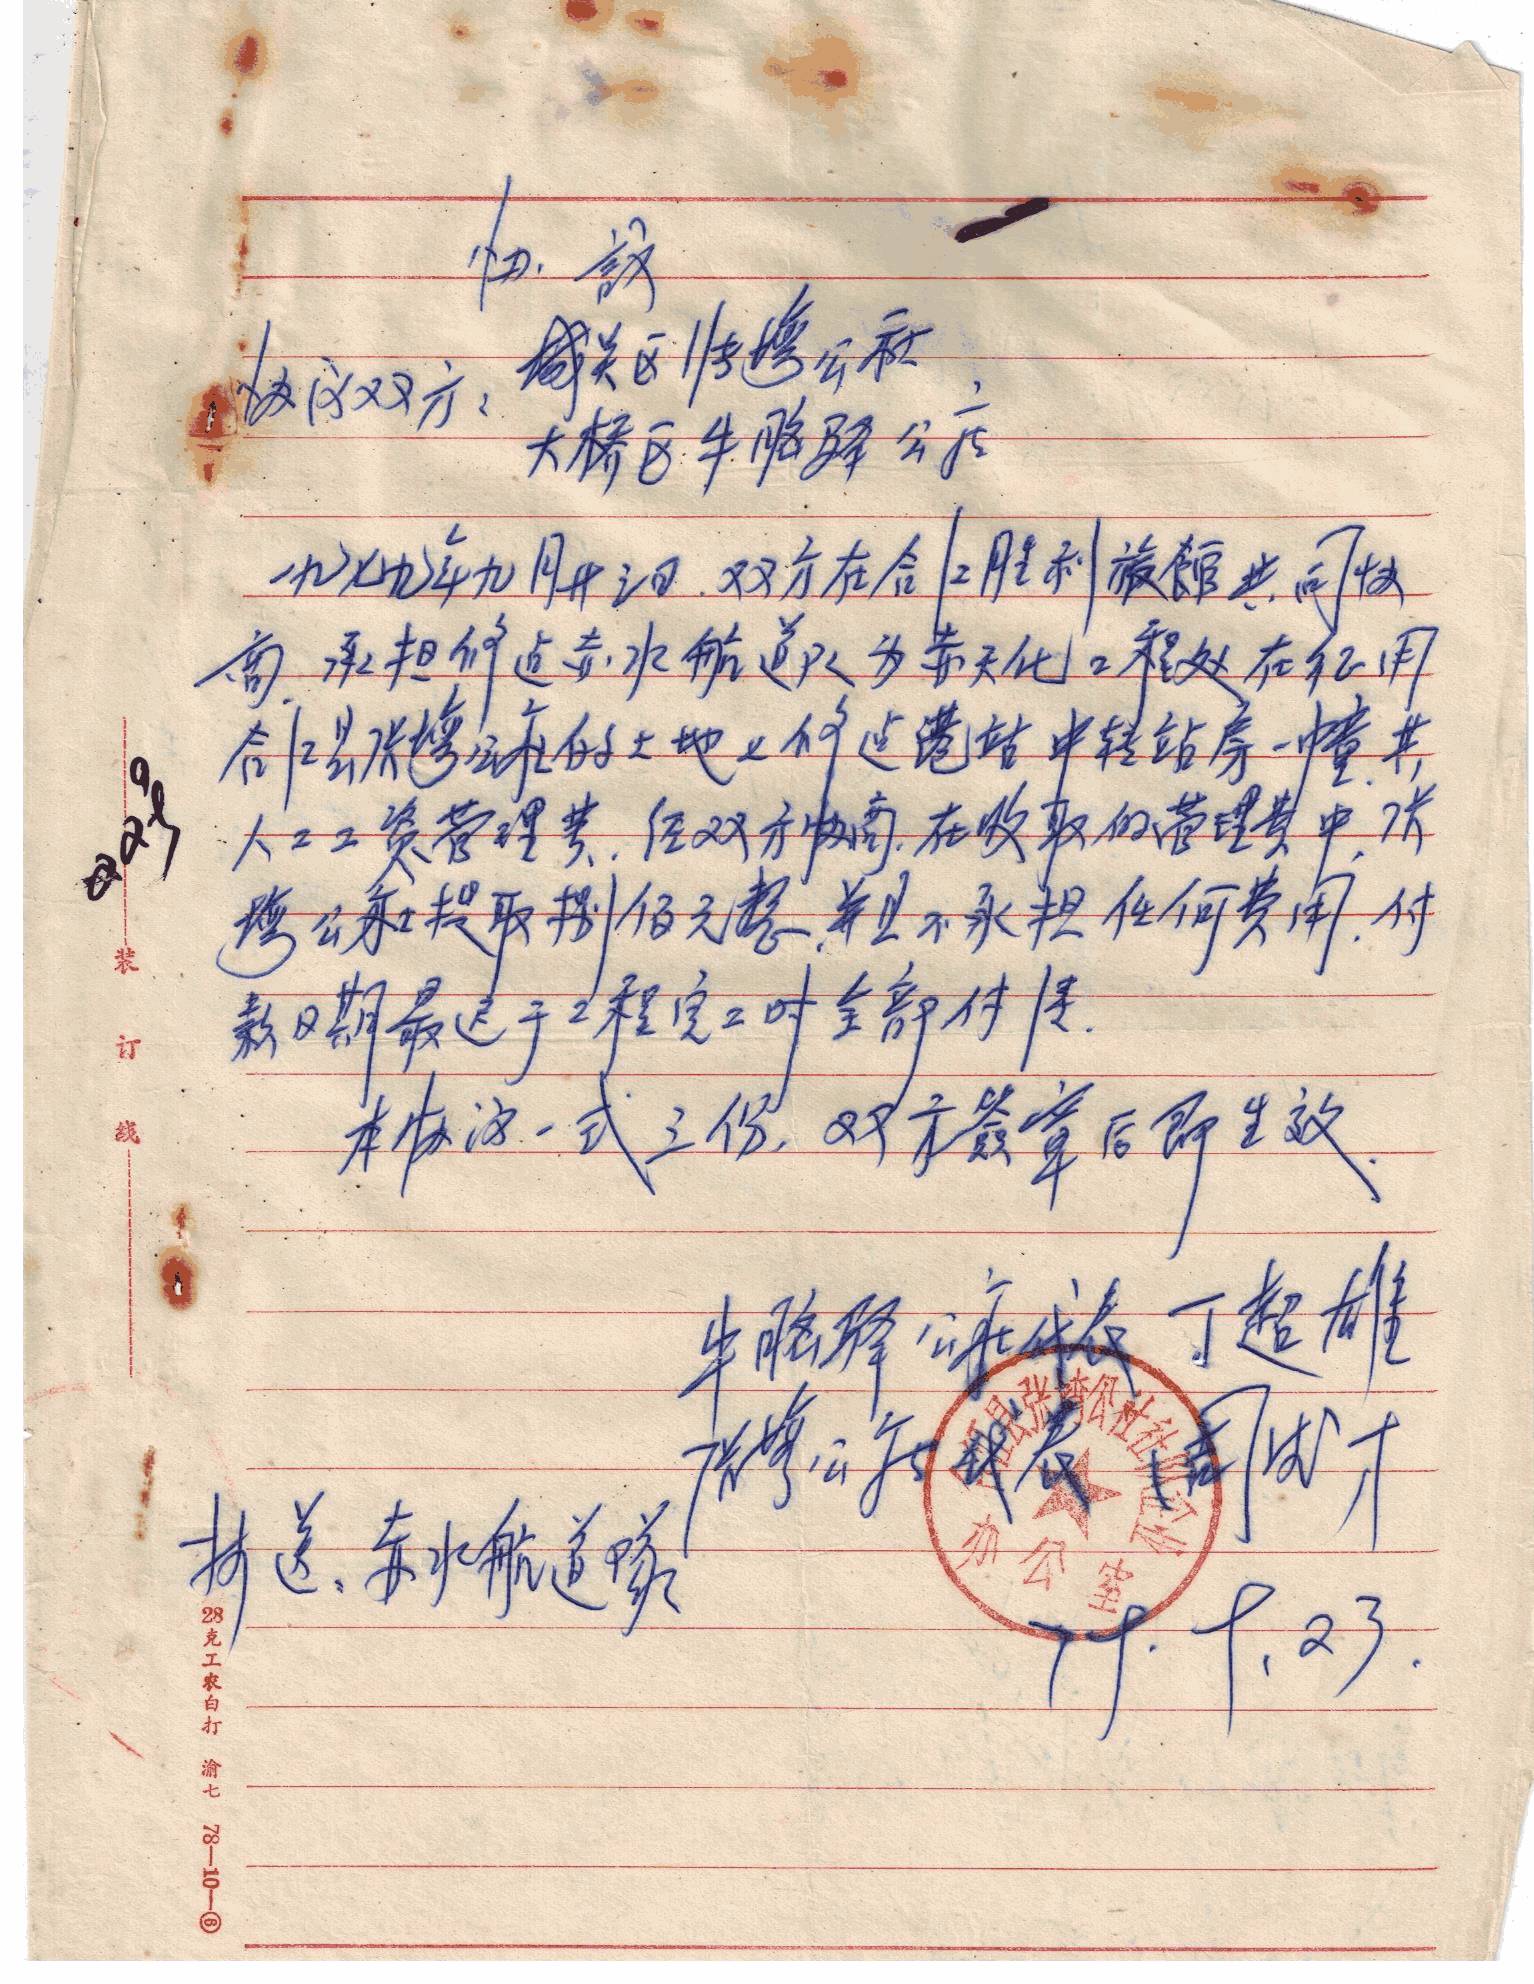 协议
协议双方：城关区张塆公社
大桥区牛脑驿公社
一九七九年九月廿三日，双方在合江胜利旅馆共同协
商，承担修造赤水航道队为赤天化工程处在征用
合江县张塆公社的土地上修造港站中转站房一幢，其
人工工资管理费，经双方协商，在收取的管理费中，张
塆公社提取捌佰元整，并且不承担任何费用，付
款日期最迟于工程完工时全部付清。
本协议一式三份，双方签章后即生效。
牛脑驿公社代表 丁超雄
张塆公社代表 周
江县张塆公社社
办公室
抄送：赤水航道队
79.9.23.
装订线
28克工农白打 渝七 78—10—⑥